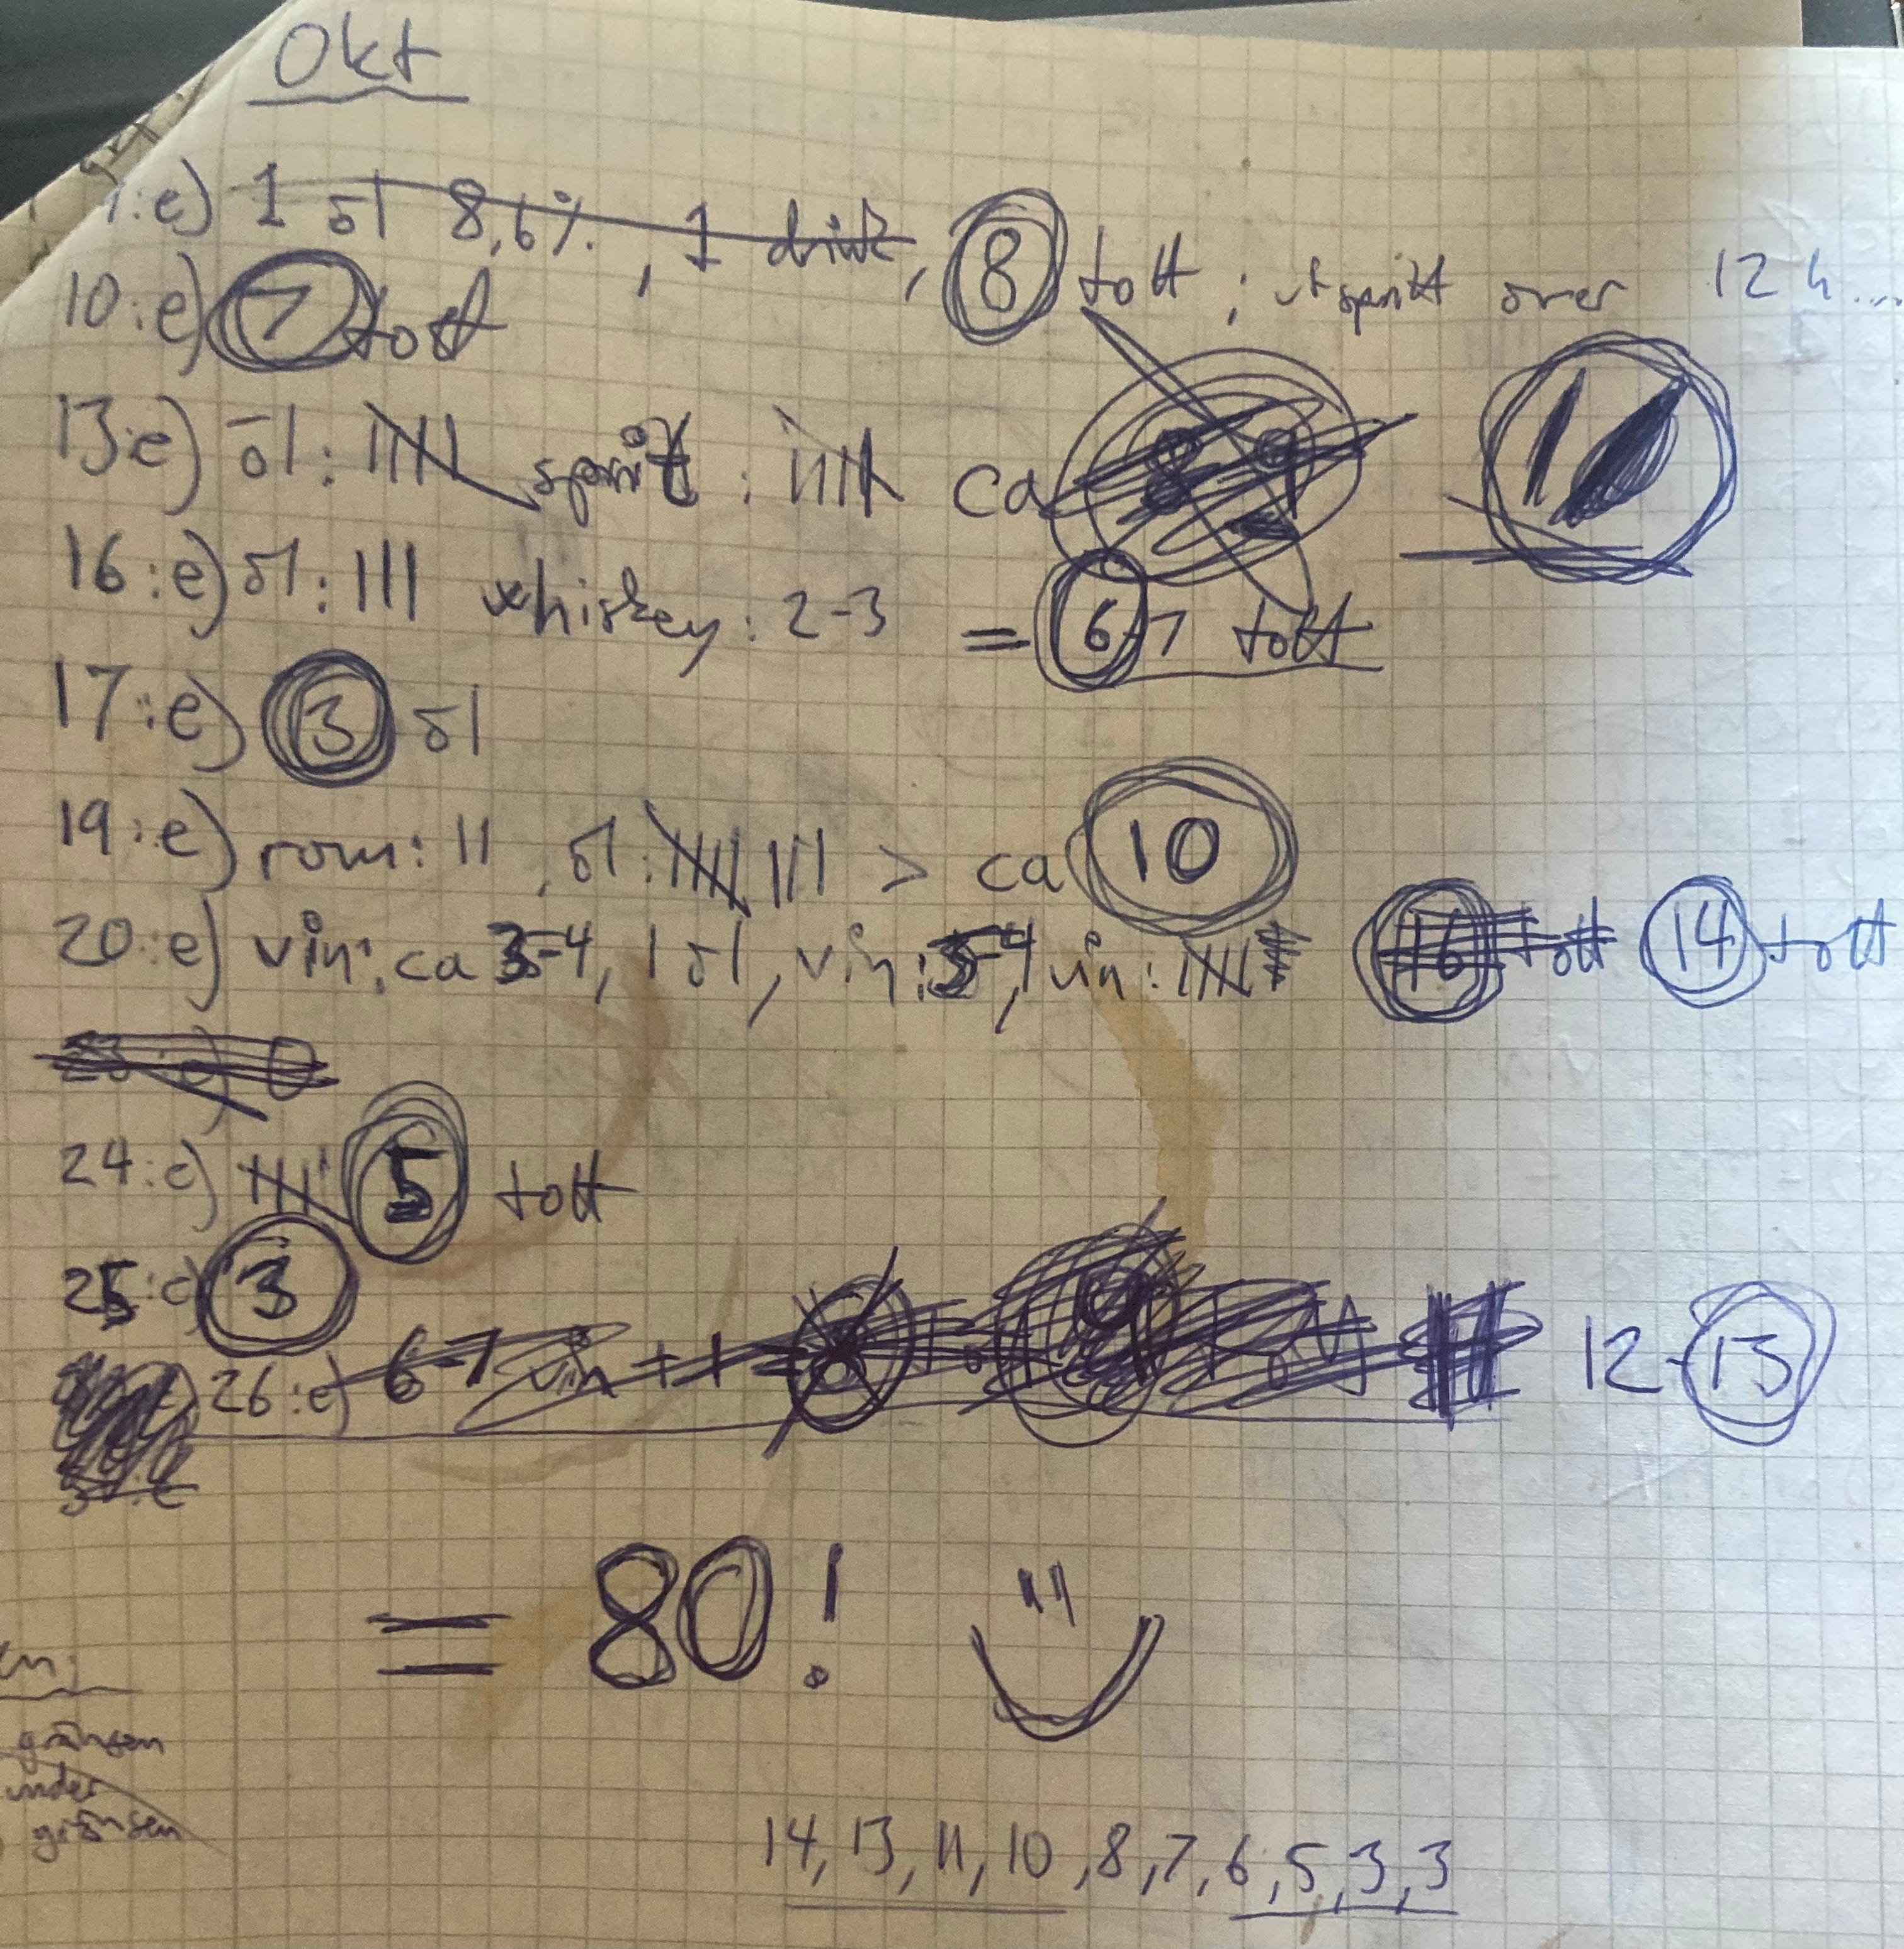 Okt
:e) 1 öl 8,6%, 1 drink, 8 tott ; utspritt över 12 h...
10:e) 7 tott
13:e) öl: IIII sprit: IIII ca 11
16:e) öl: III whiskey: 2-3 = 6-7 tott
17:e) 3 öl
19:e) rom: II, öl: IIII III > ca 10
20:e) vin: ca 3-4, 1 öl, vin: 3-4, vin: IIII 16 tott 14 tott
23:e) 0
24:e) IIII 5 tott
25:e) 3
26:e) 6-7 vin + 1 = 12-13
= 80!
en:
gränsen
under
gränsen
14, 13, 11, 10, 8, 7, 6, 5, 3, 3